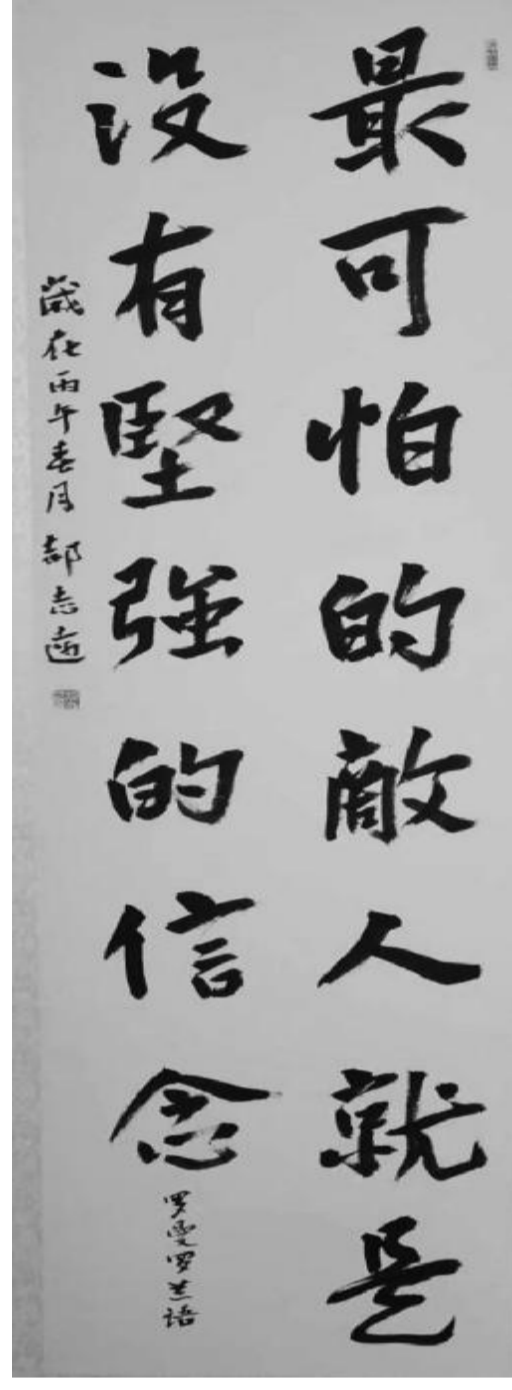 最可怕的敵人就是
沒有堅強的信念
罗曼罗兰语
歲在丙午春月郝志